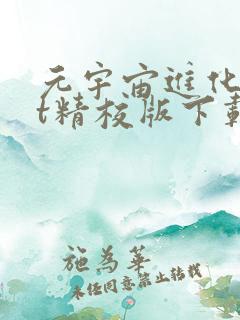 元宇宙进化
t精校版下载
施為華
未经同意禁止转载